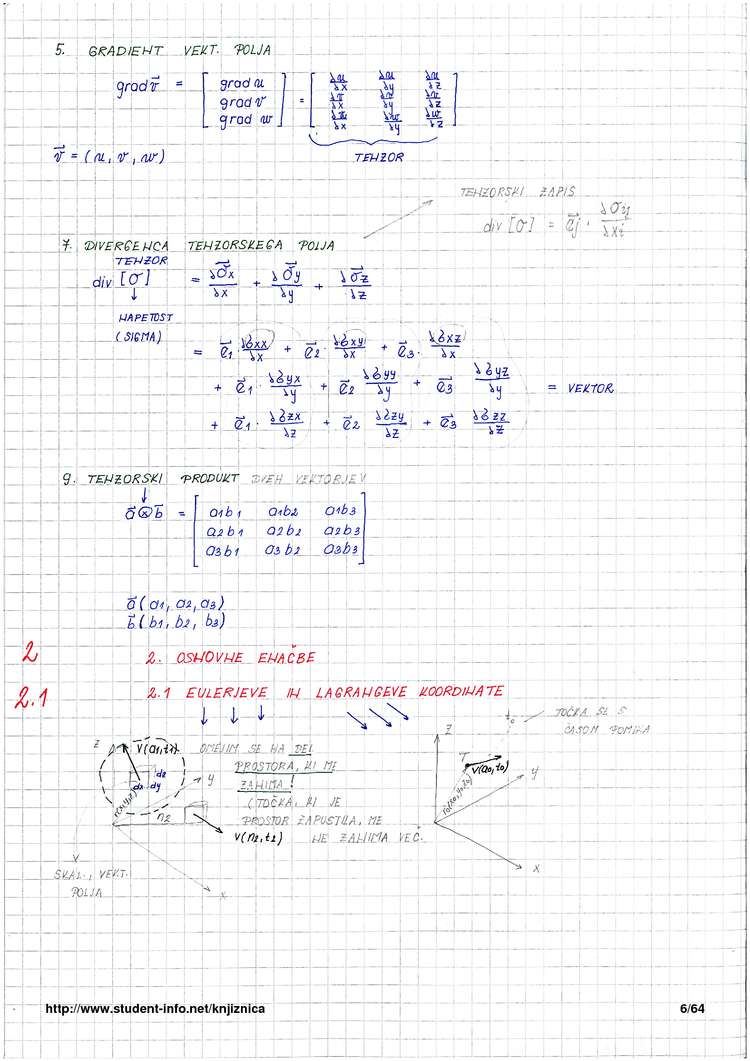 5. GRADIENT VEKT. POLJA
grad v⃗ = [ grad u ; grad v ; grad w ] = [ ∂u/∂x ∂u/∂y ∂u/∂z ; ∂v/∂x ∂v/∂y ∂v/∂z ; ∂w/∂x ∂w/∂y ∂w/∂z ]
v⃗ = (u, v, w)
TENZOR
TENZORSKI ZAPIS
div [σ] = e⃗j · ∂σij/∂xi
7. DIVERGENCA TENZORSKEGA POLJA
TENZOR
div [σ] = ∂σ⃗x/∂x + ∂σ⃗y/∂y + ∂σ⃗z/∂z
↓
NAPETOST
(SIGMA)
= e⃗1 · ∂σxx/∂x + e⃗2 · ∂σxy/∂x + e⃗3 · ∂σxz/∂x
+ e⃗1 · ∂σyx/∂y + e⃗2 ∂σyy/∂y + e⃗3 ∂σyz/∂y = VEKTOR
+ e⃗1 · ∂σzx/∂z + e⃗2 ∂σzy/∂z + e⃗3 ∂σzz/∂z
9. TENZORSKI PRODUKT DVEH VEKTORJEV
↓
a⃗ ⊗ b⃗ = [ a1b1 a1b2 a1b3
a2b1 a2b2 a2b3
a3b1 a3b2 a3b3 ]
a⃗ (a1, a2, a3)
b⃗ (b1, b2, b3)
2
2. OSNOVNE ENAČBE
2.1
2.1 EULERJEVE IN LAGRANGEVE KOORDINATE
z
V(r1,t1)
dz
dx dy
r(x,y,z)
y
r2
V(r2,t2)
x
SKAL., VEKT.
POLJA
OMEJIM SE NA DEL
PROSTORA, KI ME
ZANIMA!
(TOČKA, KI JE
PROSTOR ZAPUSTILA, ME
NE ZANIMA VEČ.
z
t0
TOČKA SE S
ČASOM POMIKA
T
V(r0,t0)
r0(x0,y0,z0)
y
x
http://www.student-info.net/knjiznica
6/64